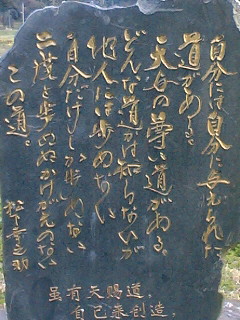 自分には自分に与えられた
道がある
天与の尊い道がある
どんな道かは知らないが
他人には歩めない
自分だけしか歩めない
二度と歩めぬかけがえのない
この道。
松下幸之助
虽有天赐道,
自己来创造,